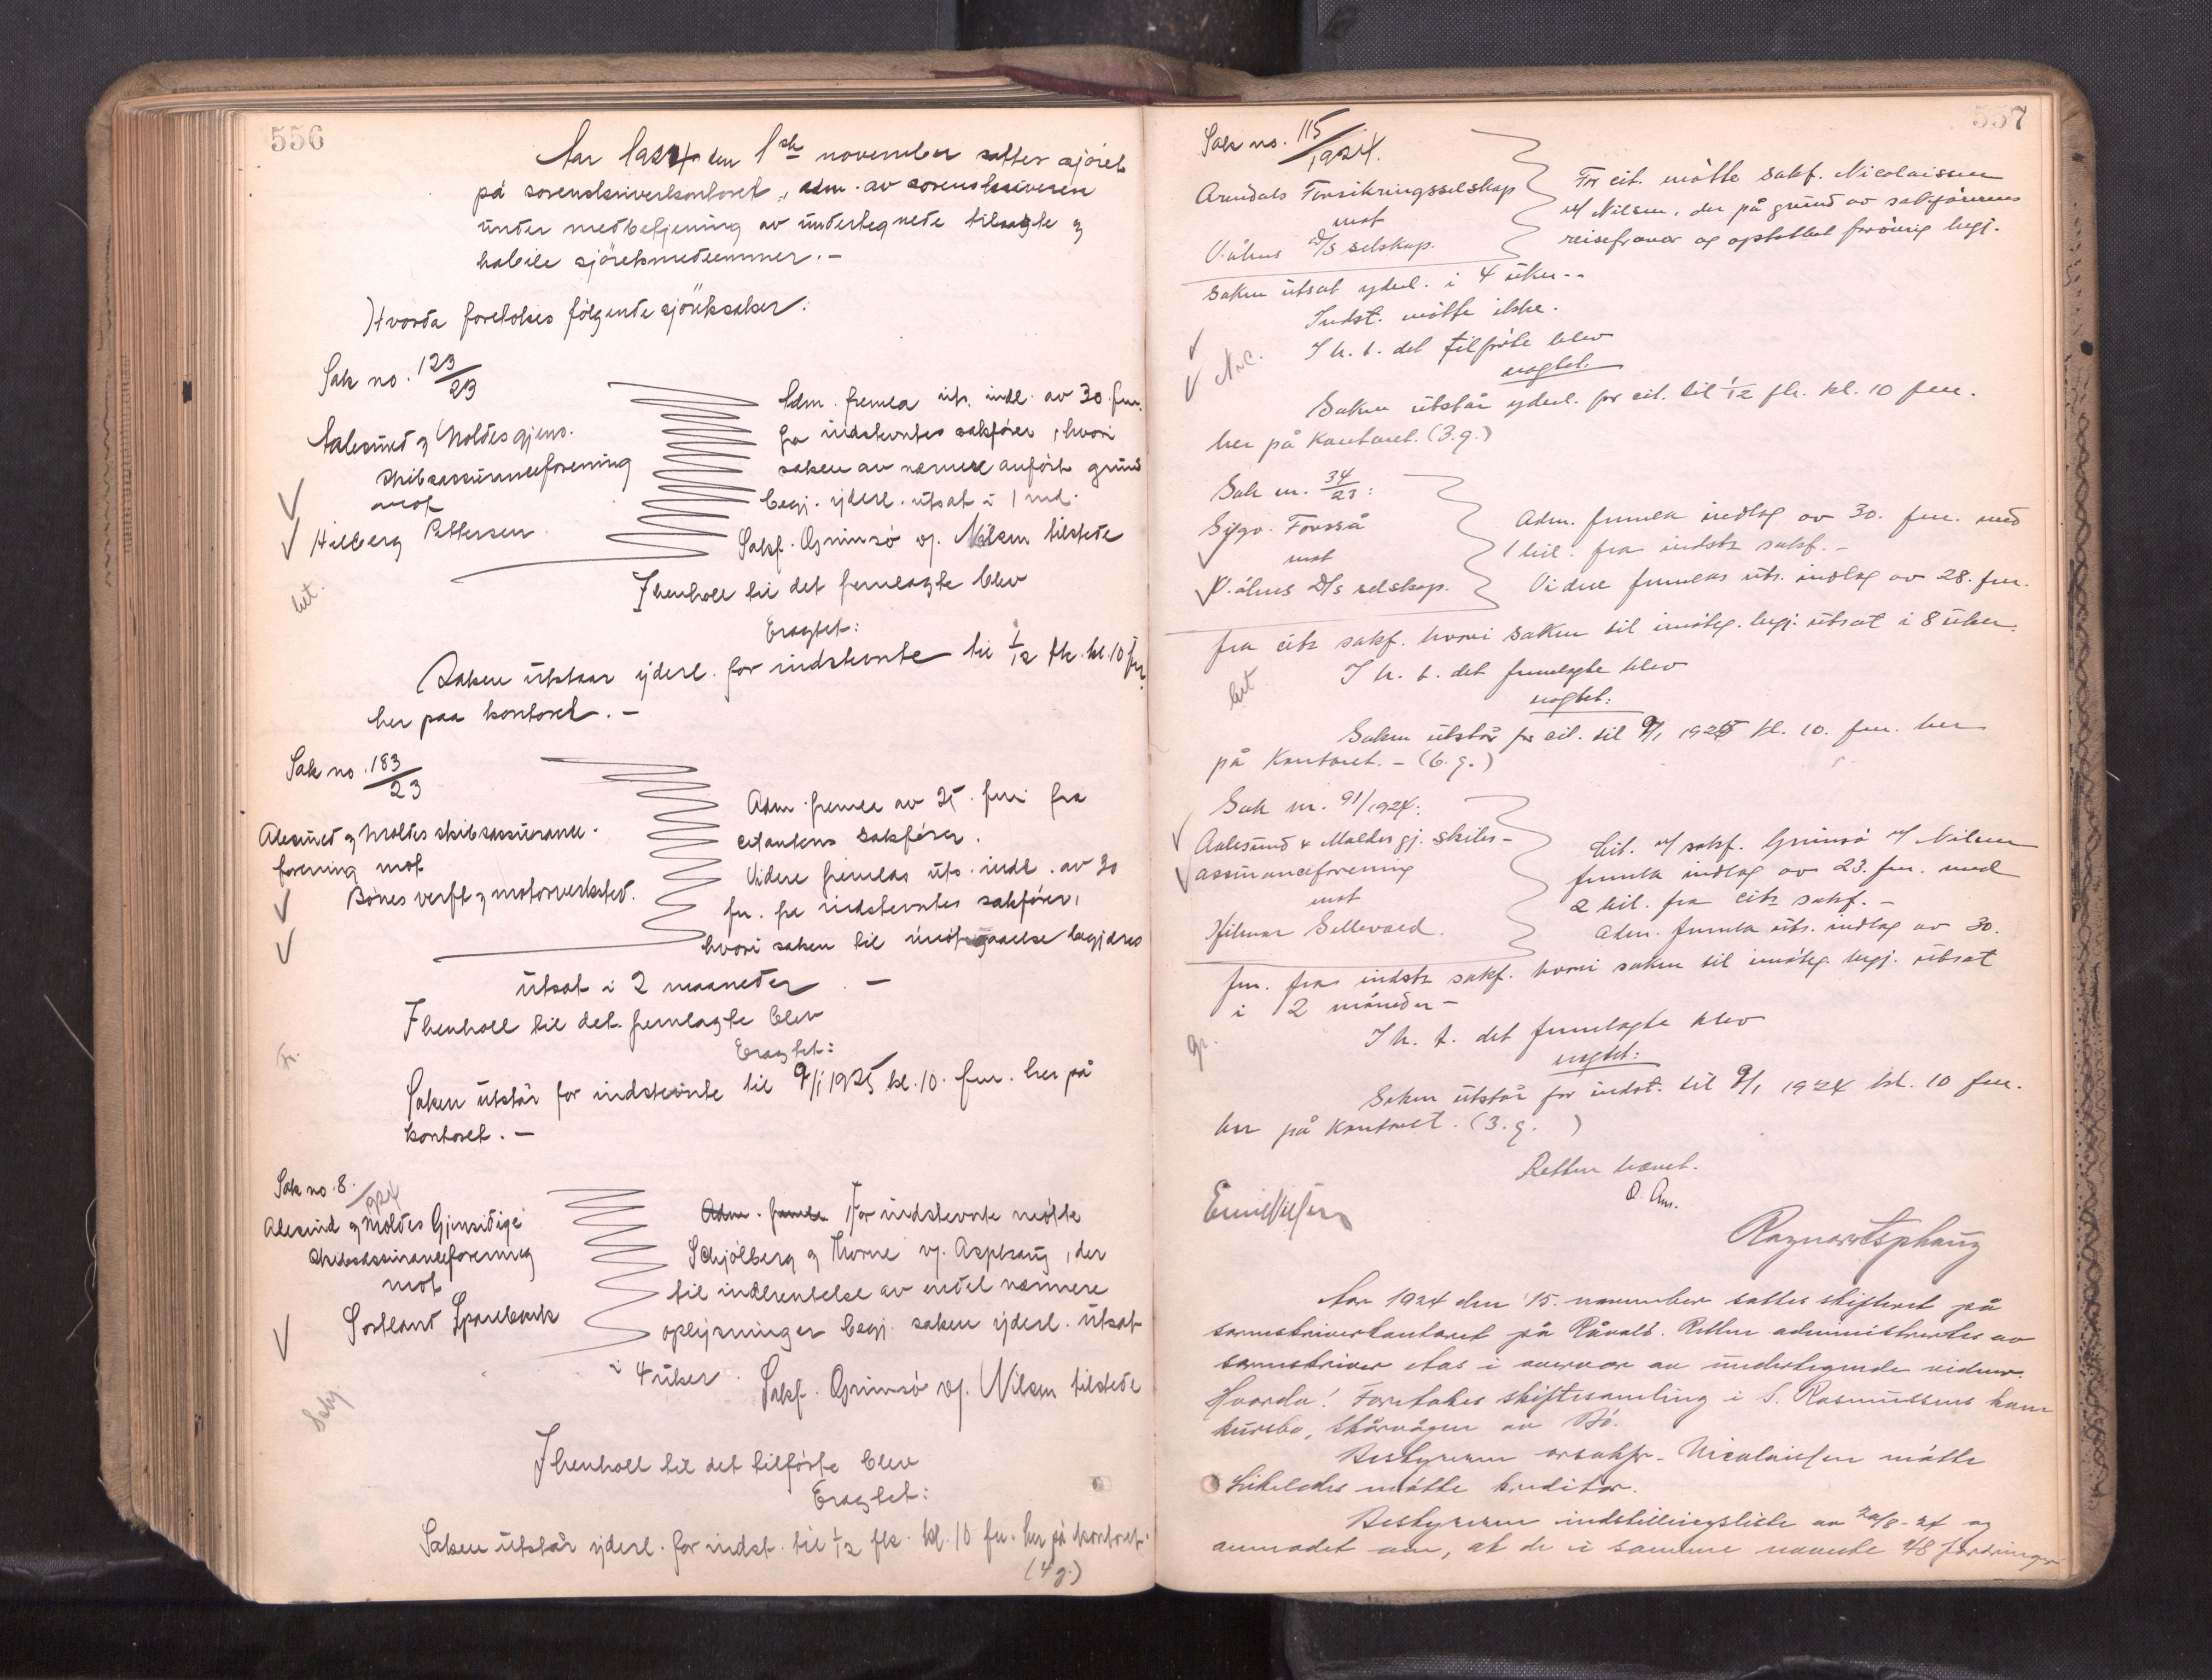 556
Aar 1924 den 1ste november sattes sjöret
på sorenskriverkontoret, adm. av sorenskriveren
under medbetjening av undertegnede tilsagte og
habile sjöretsmedlemmer. -
Hvorda foretokes følgende sjöretsaker:
Sak no. 123/23
Aalesund og Moldes gjens.
skibsassuranceforening
mot
Hilberg Pettersen
Adm. fremla uts. indl. av 30. fm.
fra indstevntes sakfører, hvori
saken av nærmere anført grund
begj. yderl. utsat i 1 md.
Sakf. Grimsö v/ Nilsen tilstede
I henhold til det fremlagte blev
Eragtet:
Saken utstaar yderl. for indstevnte til 1/12 fk. kl. 10 fm.
her paa kontoret. -
Sak no. 183/23
Alesund og Moldes skibsassurance-
forening mot
Bönes verft og motorverksted.
Adm. fremla av 25. fm. fra
citantens sakfører.
Videre fremlas uts. indl. av 30
fm. fra indstevntes sakfører,
hvori saken til imötegaaelse begjæres
utsat i 2 maaneder. -
I henhold til det fremlagte blev
Eragtet:
Saken utstår for indstevnte til 9/1 1925 kl. 10. fm. her på
kontoret. -
Sak no. 8/1924
Alesund og Moldes Gjensidige
skibsassuranceforening
mot
Sortland Sparebank
Adm. fremla For indstevnte møtte
Schjölberg og Thorne v/ Asphaug, der
til indhentelse av endel nærmere
oplysninger begj. saken yderl. utsat
i 4 uker. Sakf. Grimsö v/ Nilsen tilstede
I henhold til det tilförte blev
Eragtet:
Saken utstår yderl. for indst. til 1/12 fk. kl. 10 fm. her på kontoret.
(4 g.)
557
Sak no. 115/1924.
Arendals Forsikringsselskap
mot
V.ålens D/S selskap.
For cit. møtte sakf. Nicolaissen
v/ Nilsen, der på grund av sakførerens
reisefravær og optatthet forøvrig begj.
saken utsat yderl. i 4 uker. -
Indst. møtte ikke.
I h. t. det tilførte blev
eragtet:
Saken utstår yderl. for cit. til 1/12 fk. kl. 10 fm.
her på Kontoret. (3. g.)
Sak nr. 34/23:
Forsså
mot
V.ålens D/S selskap.
Adm. fremla indlag av 30. fm. med
1 bil. fra indsts sakf. -
Videre fremlas uts. indlag av 28. fm.
fra cits sakf. hvori saken til imøteg. begj. utsat i 8 uker.
I h. t. det fremlagte blev
eragtet:
Saken utstår for cit. til 9/1 1925 kl. 10. fm. her
på Kontoret. - (6. g.)
Sak nr. 91/1924:
Aalesund & Moldes gj. skibs-
assuranceforening
mot
Hilmar Sellevold.
Cit. v/ sakf. Grimsö v/ Nilsen
fremla indlag av 23. fm. med
2 bil. fra cits sakf. -
Adm. fremla uts. indlag av 30.
fm. fra indsts sakf. hvori saken til imøteg. begj. utsat
i 2 måneder -
I h. t. det fremlagte blev
eragtet:
Saken utstår for indst. til 9/1 1924 kl. 10 fm.
her på Kontoret. (3. g. )
Retten hævet.
Emil Nilsen
Ragnar Asphaug
Aar 1924 den 15. november sattes skifteret på
sorenskriverkontoret på Råvold. Retten administrertes av
sorenskriver Aas i nærvær av undertegnede vidner.
Hvorda! Foretokes skiftesamling i S. Rasmussens kon
kursbo, Skårvågen av Bö.
Bestyreren orsakfr. Nicolaissen møtte
Likeledes møtte kreditor.
Bestyrerens indstillingsliste av 20/8-24 og
anmodet om, at de i samme nævnte 48 fordringer